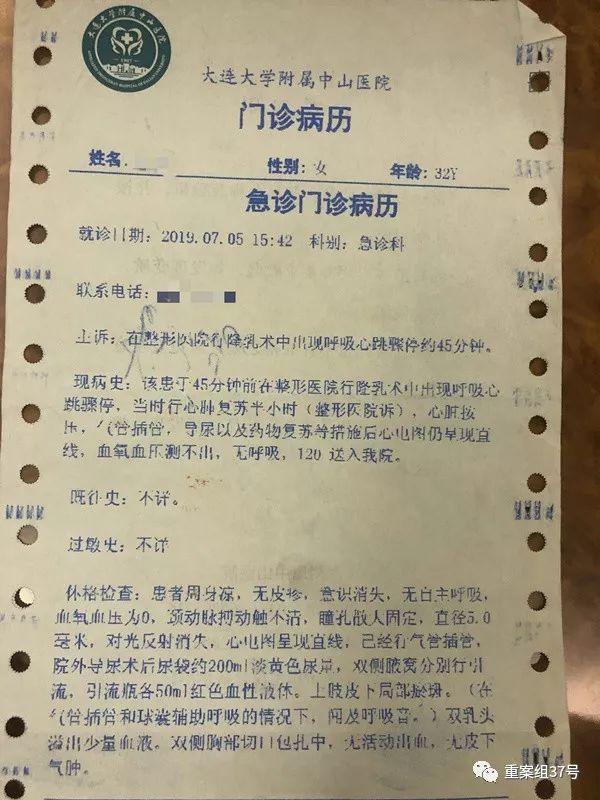 大连大学附属中山医院
门诊病历
姓名. 性别: 女 年龄: 32Y
急诊门诊病历
就诊日期: 2019.07.05 15:42 科别: 急诊科
联系电话:
主诉: 在整形医院行隆乳术中出现呼吸心跳骤停约45分钟。
现病史: 该患于45分钟前在整形医院行隆乳术中出现呼吸心
跳骤停, 当时行心肺复苏半小时 (整形医院诉), 心脏按
压, 气管插管, 导尿以及药物复苏等措施后心电图仍呈现直
线, 血氧血压测不出, 无呼吸, 120 送入我院。
既往史: 不详。
过敏史: 不详
体格检查: 患者周身凉, 无皮疹, 意识消失, 无自主呼吸,
血氧血压为0, 颈动脉搏动触不清, 瞳孔散大固定, 直径5.0
毫米, 对光反射消失, 心电图呈现直线, 已经行气管插管,
院外导尿术后尿袋约200ml淡黄色尿量, 双侧腋窝分别行引
流, 引流瓶各50ml红色血性液体。上肢皮下局部瘀斑。(在
气管插管和球囊辅助呼吸的情况下, 闻及呼吸音。) 双乳头
溢出少量血液。双侧胸部切口包扎中, 无活动出血, 无皮下
气肿。
重案组37号